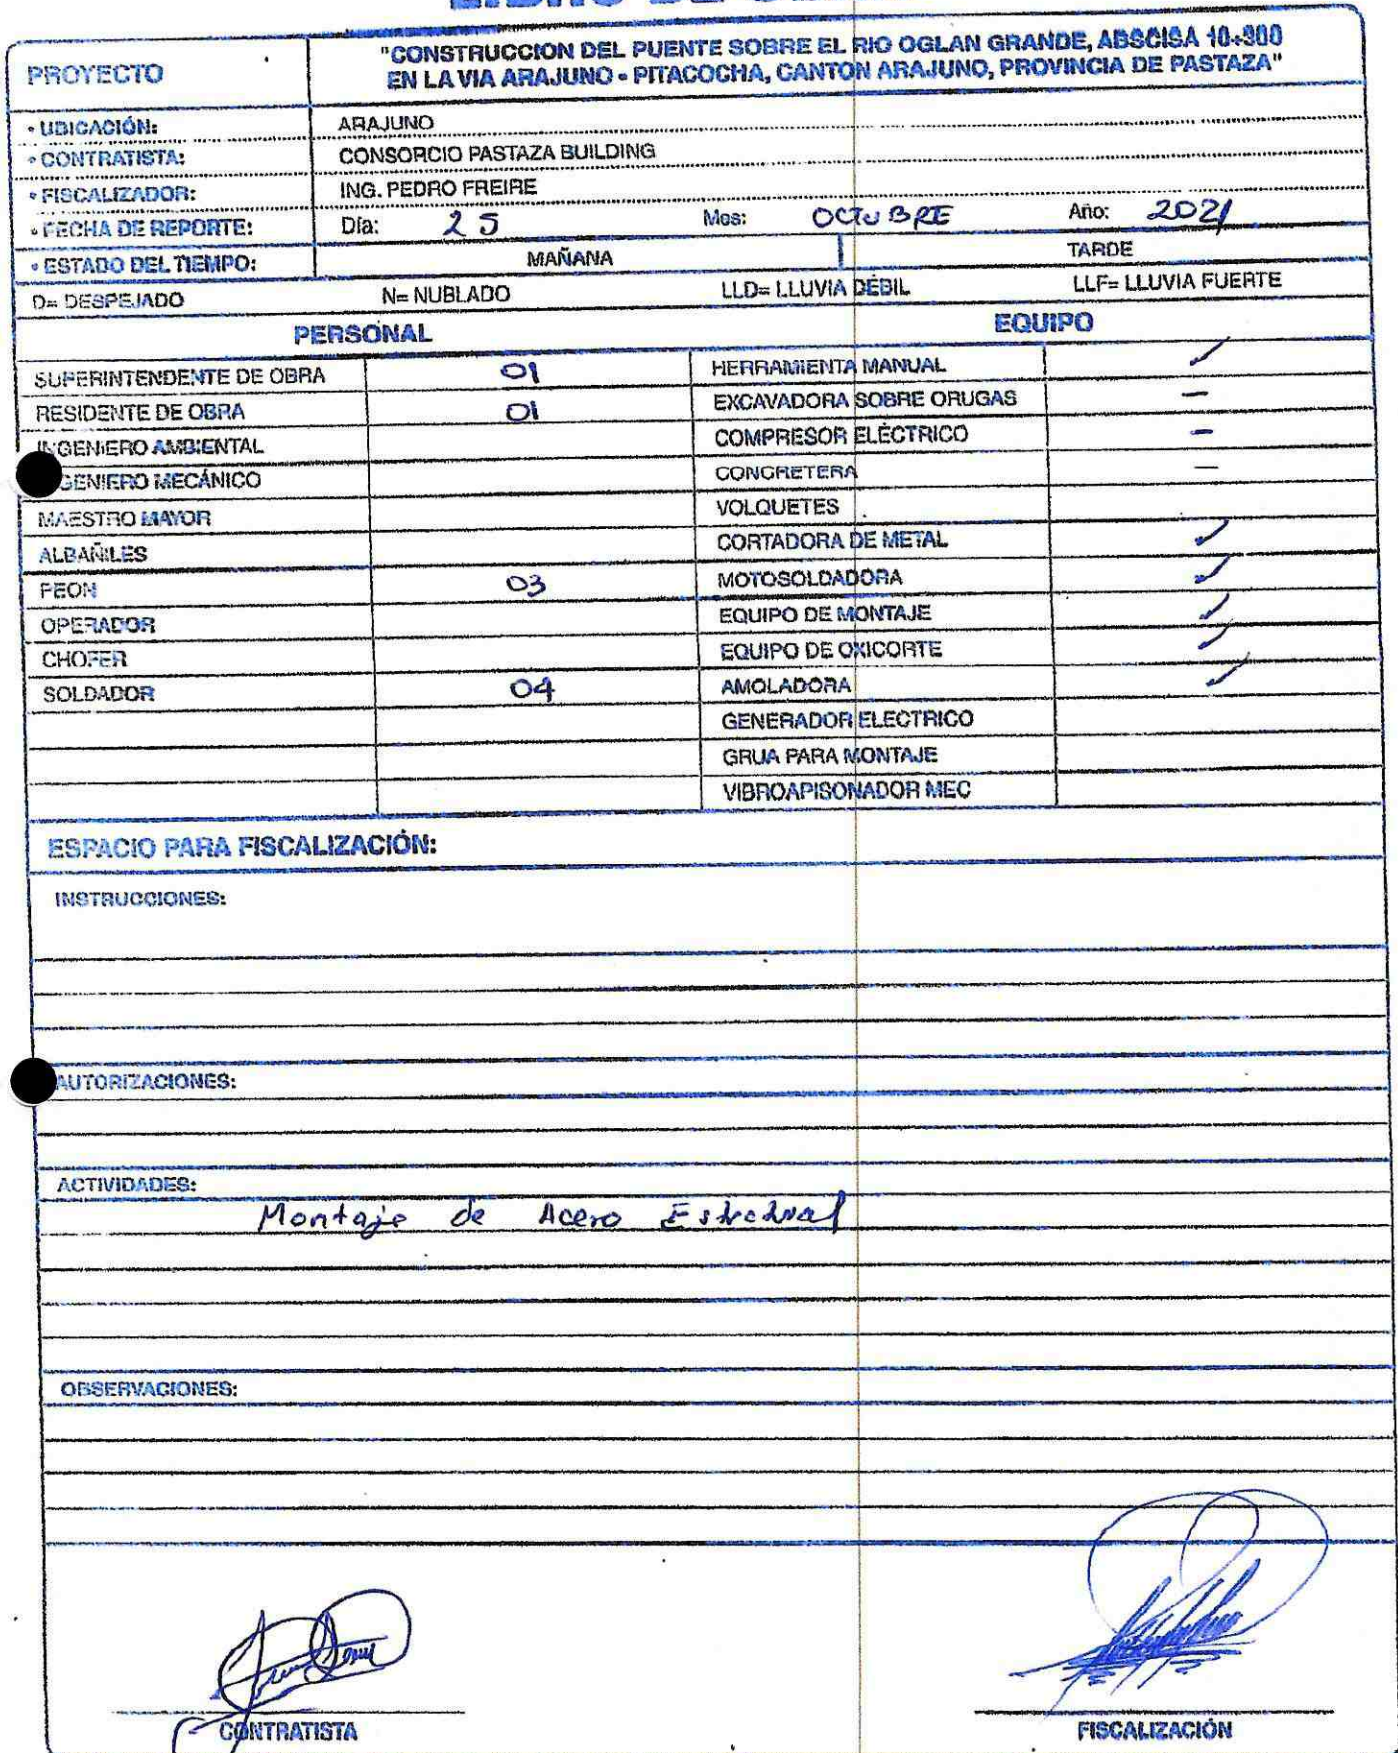 PROYECTO
"CONSTRUCCION DEL PUENTE SOBRE EL RIO OGLAN GRANDE, ABSCISA 10+300
EN LA VIA ARAJUNO - PITACOCHA, CANTON ARAJUNO, PROVINCIA DE PASTAZA"
• UBICACIÓN: ARAJUNO
• CONTRATISTA: CONSORCIO PASTAZA BUILDING
• FISCALIZADOR: ING. PEDRO FREIRE
• FECHA DE REPORTE: Día: 25 Mes: OCTUBRE Año: 2021
• ESTADO DEL TIEMPO: MAÑANA TARDE
D= DESPEJADO N= NUBLADO LLD= LLUVIA DÉBIL LLF= LLUVIA FUERTE
PERSONAL EQUIPO
SUPERINTENDENTE DE OBRA 01 HERRAMIENTA MANUAL ✓
RESIDENTE DE OBRA 01 EXCAVADORA SOBRE ORUGAS -
INGENIERO AMBIENTAL COMPRESOR ELÉCTRICO -
GENIERO MECÁNICO CONCRETERA -
MAESTRO MAYOR VOLQUETES
ALBAÑILES CORTADORA DE METAL ✓
PEON 03 MOTOSOLDADORA ✓
OPERADOR EQUIPO DE MONTAJE ✓
CHOFER EQUIPO DE OXICORTE ✓
SOLDADOR 04 AMOLADORA ✓
GENERADOR ELECTRICO
GRUA PARA MONTAJE
VIBROAPISONADOR MEC
ESPACIO PARA FISCALIZACIÓN:
INSTRUCCIONES:
AUTORIZACIONES:
ACTIVIDADES:
Montaje de Acero Estructural
OBSERVACIONES:
CONTRATISTA FISCALIZACIÓN